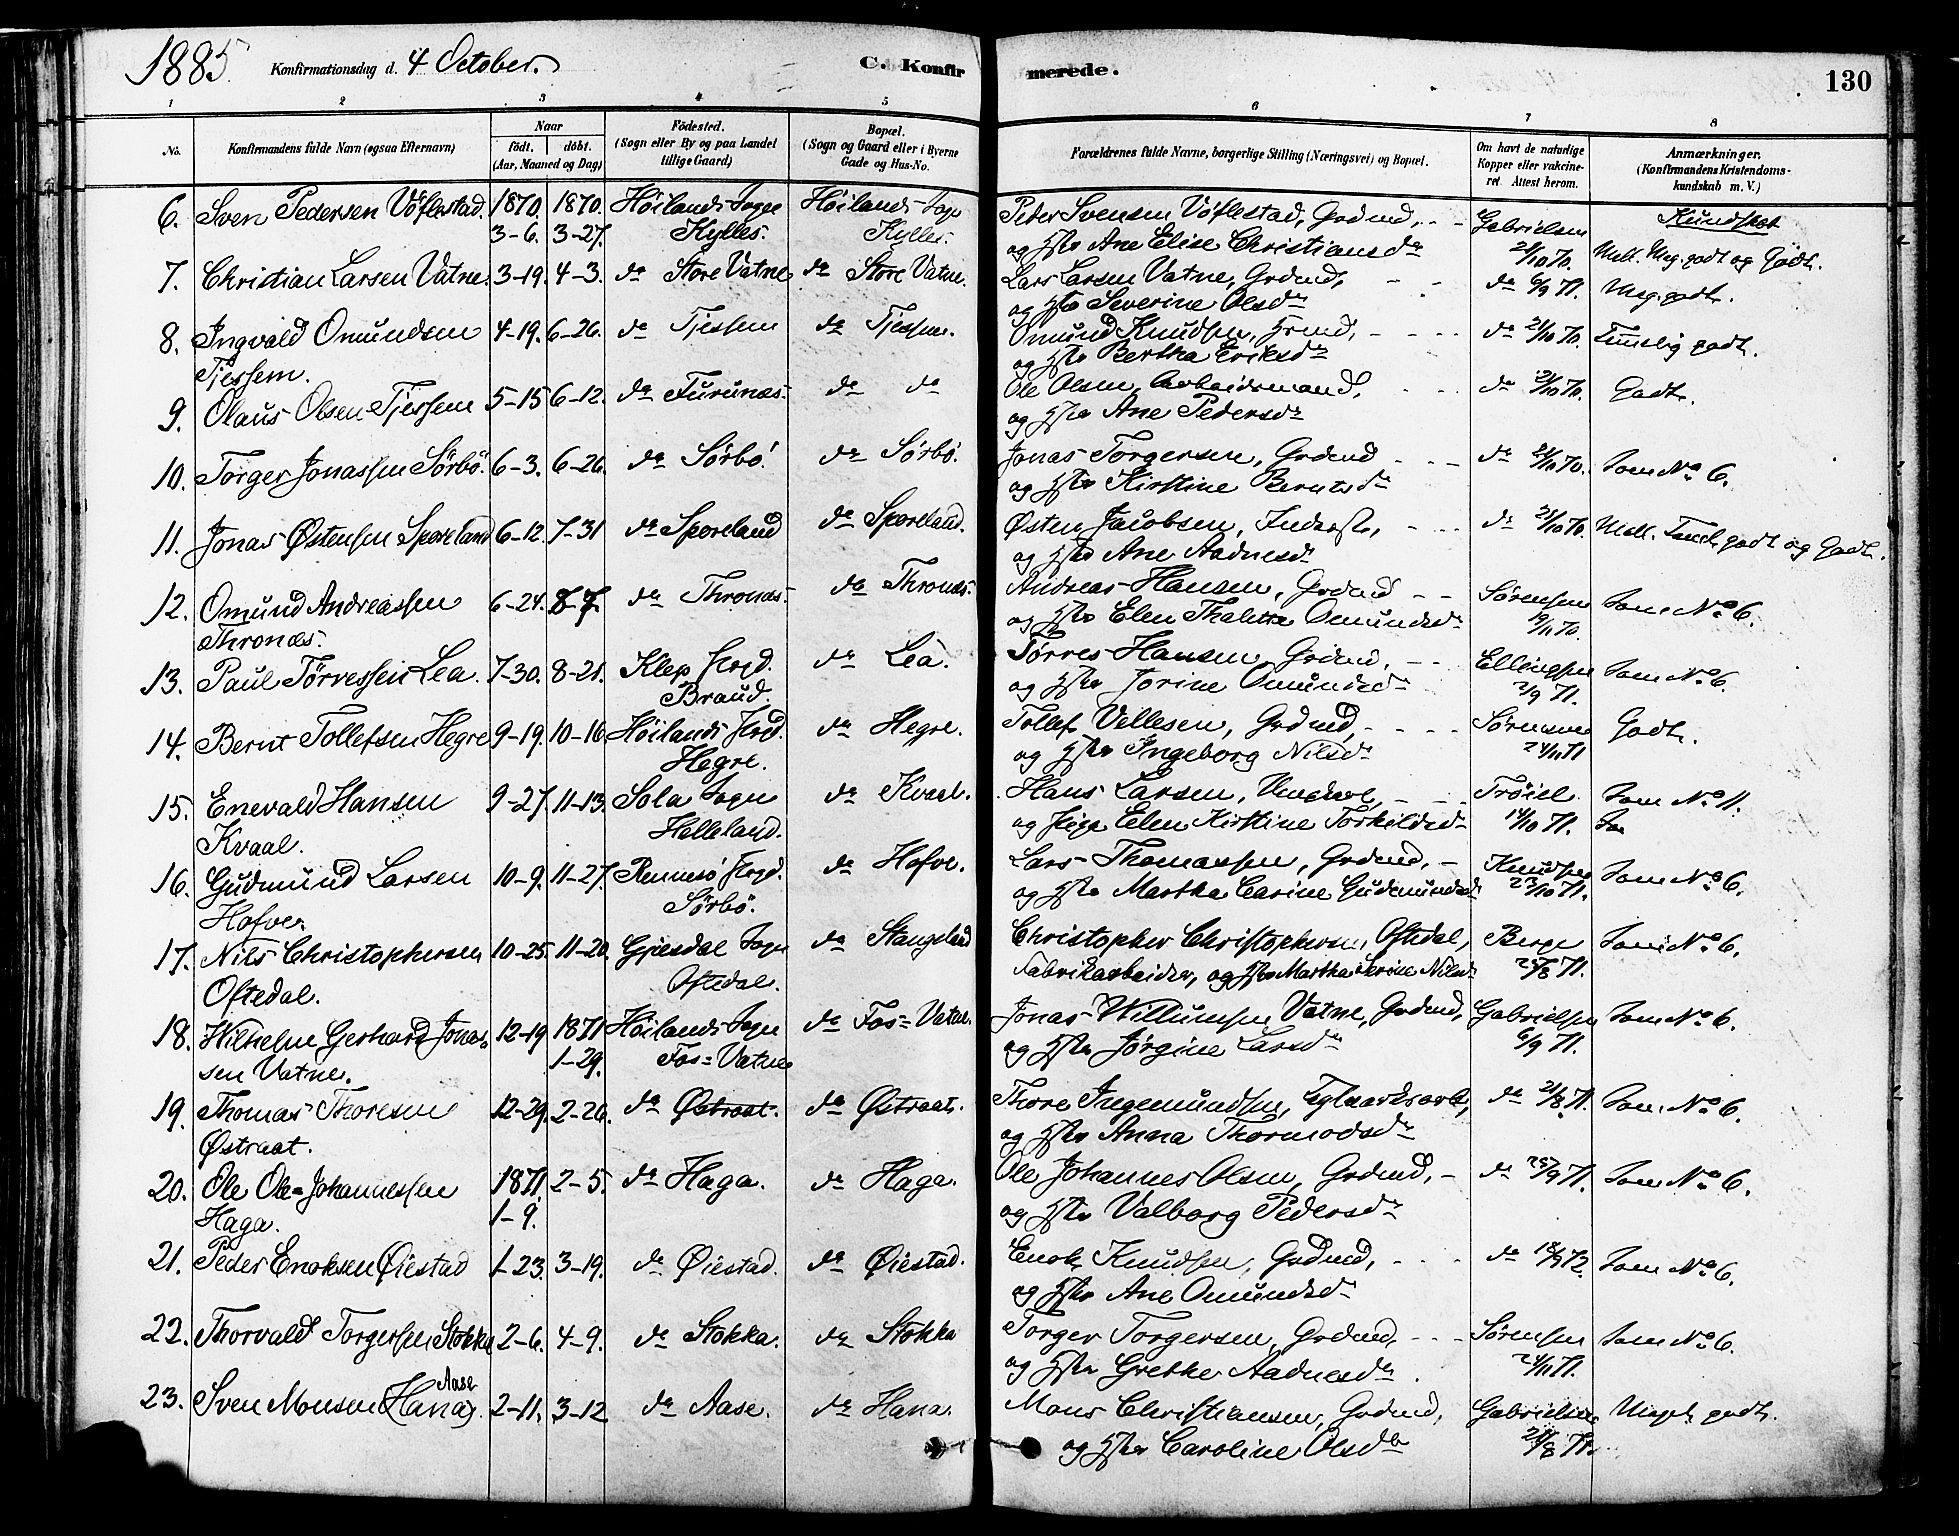 1885. Konfirmationsdag d. 4 October. C. Konfirmerede. 130
1 2 3 4 5 6 7 8
No. Konfirmandens fulde Navn (ogsaa Efternavn) Naar födt. döbt. (Aar, Maaned og Dag) Födested. (Sogn eller By og paa Landet tillige Gaard) Bopæl. (Sogn og Gaard eller i Byerne Gade og Hus-No. Forældrenes fulde Navne, borgerlige Stilling (Næringsvei) og Bopæl. Om havt de naturlige Kopper eller vakcineret. Attest herom. Anmærkninger. (Konfirmandens Kristendomskundskab m. V.)
6. Sven Pedersen Vöflestad. 1870. 1870. Höilands Sogn Höilands Sogn Peder Svensen Vöflestad, Grdmd, Gabrielsen Kundskab
3-6. 3-27. Kylles. Kylles. og Hstr Ane Elise Christiansdr 21/10 70. Mell. Meg. godt og Godt.
7. Christian Larsen Vatne. 3-19. 4-3. do Store Vatne do Store Vatne. Lars Larsen Vatne, Grdmd, do 6/9 71. Meg. godt.
og Hstr Severine Olsdr
8. Ingvald Omundsen 4-19. 6-26. do Tjessem do Tjessem. Omund Knudsen, do 21/10 70. Temmelig godt.
Tjessem. og Hstr Bertha Eriksdr
9. Olaus Olsen Tjessem 5-15 6-12. do Furunæs. do do Ole Olsen, Arbeidsmand, do 21/10 70. Godt.
og Hstr Ane Pedersdr
10. Torger Jonassen Sörbö. 6-3. 6-26. do Sörbö. do Sörbö. Jonas Torgersen, Grdmd do 21/10 70. Som No 6.
og Hstr Kirstine Berntsdr
11. Jonas Østensen Sporeland 6-12. 7-31 do Sporeland do Sporeland. Østen Jacobsen, Inderst, do 21/10 70. Mell. Teml. godt og Godt.
og Hstr Ane Aadnesdr
12. Omund Andreassen 6-24. 8-7. do Thronæs. do Thronæs. Andreas Hansen, Grdmd Sörensen Som No 6.
Thronæs. og Hstr Elen Thalette Omundsdr 19/11 70.
13. Paul Törressen Lea. 7-30. 8-21. Klep Prgd. do Lea. Törres Hansen, Grdmd, Ellingsen Som No 6.
Braud. og Hstr Jorine Omundsdr 2/9 71.
14. Bernt Tollefsen Hegre 9-19. 10-16. Höilands Prgd. do Hegre. Tollef Villesen, Grdmd, Sörensen Godt.
Hegre. og Hstr Ingeborg Nilsdr 24/11 71
15. Enevald Hansen 9-27. 11-13. Sola Sogn do Kvaal. Hans Larsen, Tröiel Som No 11.
Kvaal. Helleland. og Pige Elen Kirstine Torkildsdr 14/10 71.
16. Gudmund Larsen 10-9. 11-27. Rennesö Prgd. do Hofve. Lars Thomassen, Grdmd, Knudsen Som No 6.
Hofve. Sörbö. og Hstr Martha Carine Gudmundsdr 23/10 71.
17. Nils Christophersen 10-25. 11-20. Gjesdal Sogn do Stangeland Christopher Christophersen, Oftedal, Berge Som No 6.
Oftedal. Oftedal. Fabrikarbeider, og Hstr Martha Serine Nilsdr 25/8 71.
18. Wilhelm Gerhard Jonas- 12-19 1871 Höilands Sogn do Fos=Vatne. Jonas Willumsen Vatne, Grdmd, Gabrielsen Som No 6.
sen Vatne. 1-29. Fos=Vatne og Hstr Jörgine Larsdr 6/9 71.
19. Thomas Thoresen 12-29. 2-26. do Østraat. do Østraat. Thore Ingemundsen, Teglværksarb., do 21/8 71. Som No 6.
Østraat. og Hstr Anna Thormodsdr
20. Ole Ole=Johannessen 1871. 2-5. do Haga. do Haga. Ole Johannes Olsen, Grdmd, do 25/9 71. Som No 6.
Haga. 1-9. og Hstr Valborg Pedersdr
21. Peder Enoksen Øiestad 1-23. 3-19. do Øiestad. do Øiestad. Enok Knudsen, Grdmd, do Som No 6.
og Hstr Ane Omundsdr
22. Thorvald Torgersen Stokka 2-6. 4-9. do Stokka. do Stokka Torger Torgersen, Grdmd, Sörensen Som No 6.
og Hstr Grethe Aadnesdr. 24/11 71.
23. Sven Monsen (Hana) Aase 2-11. 3-12 do Aase. do Hana. Mons Christiansen, Grdmd, Gabrielsen Meget godt.
og Hstr Caroline Olsdr 21/8 71.